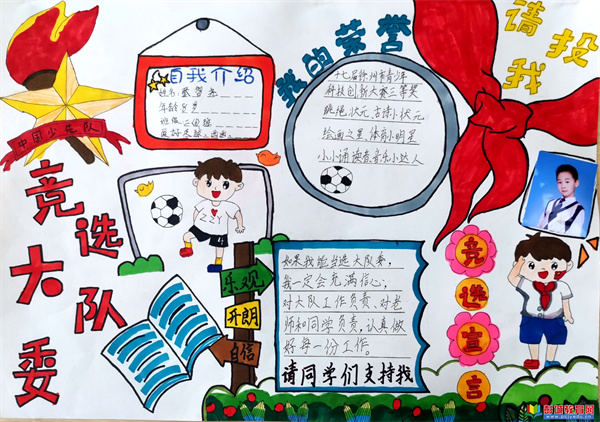 中国少先队
竞选大队委
自我介绍
年龄8岁
我的荣誉
十七届徐州市青少年
科技创新大赛三等奖
跳绳状元 古诗小状元
绘画之星 体育小明星
小小诵读者音乐小达人
请投我
乐观
开朗
自信
如果我能当选大队委，
我一定会充满信心，
对大队工作负责，对老
师和同学负责，认真做
好每一份工作。
请同学们支持我
竞选宣言
彭城教育网